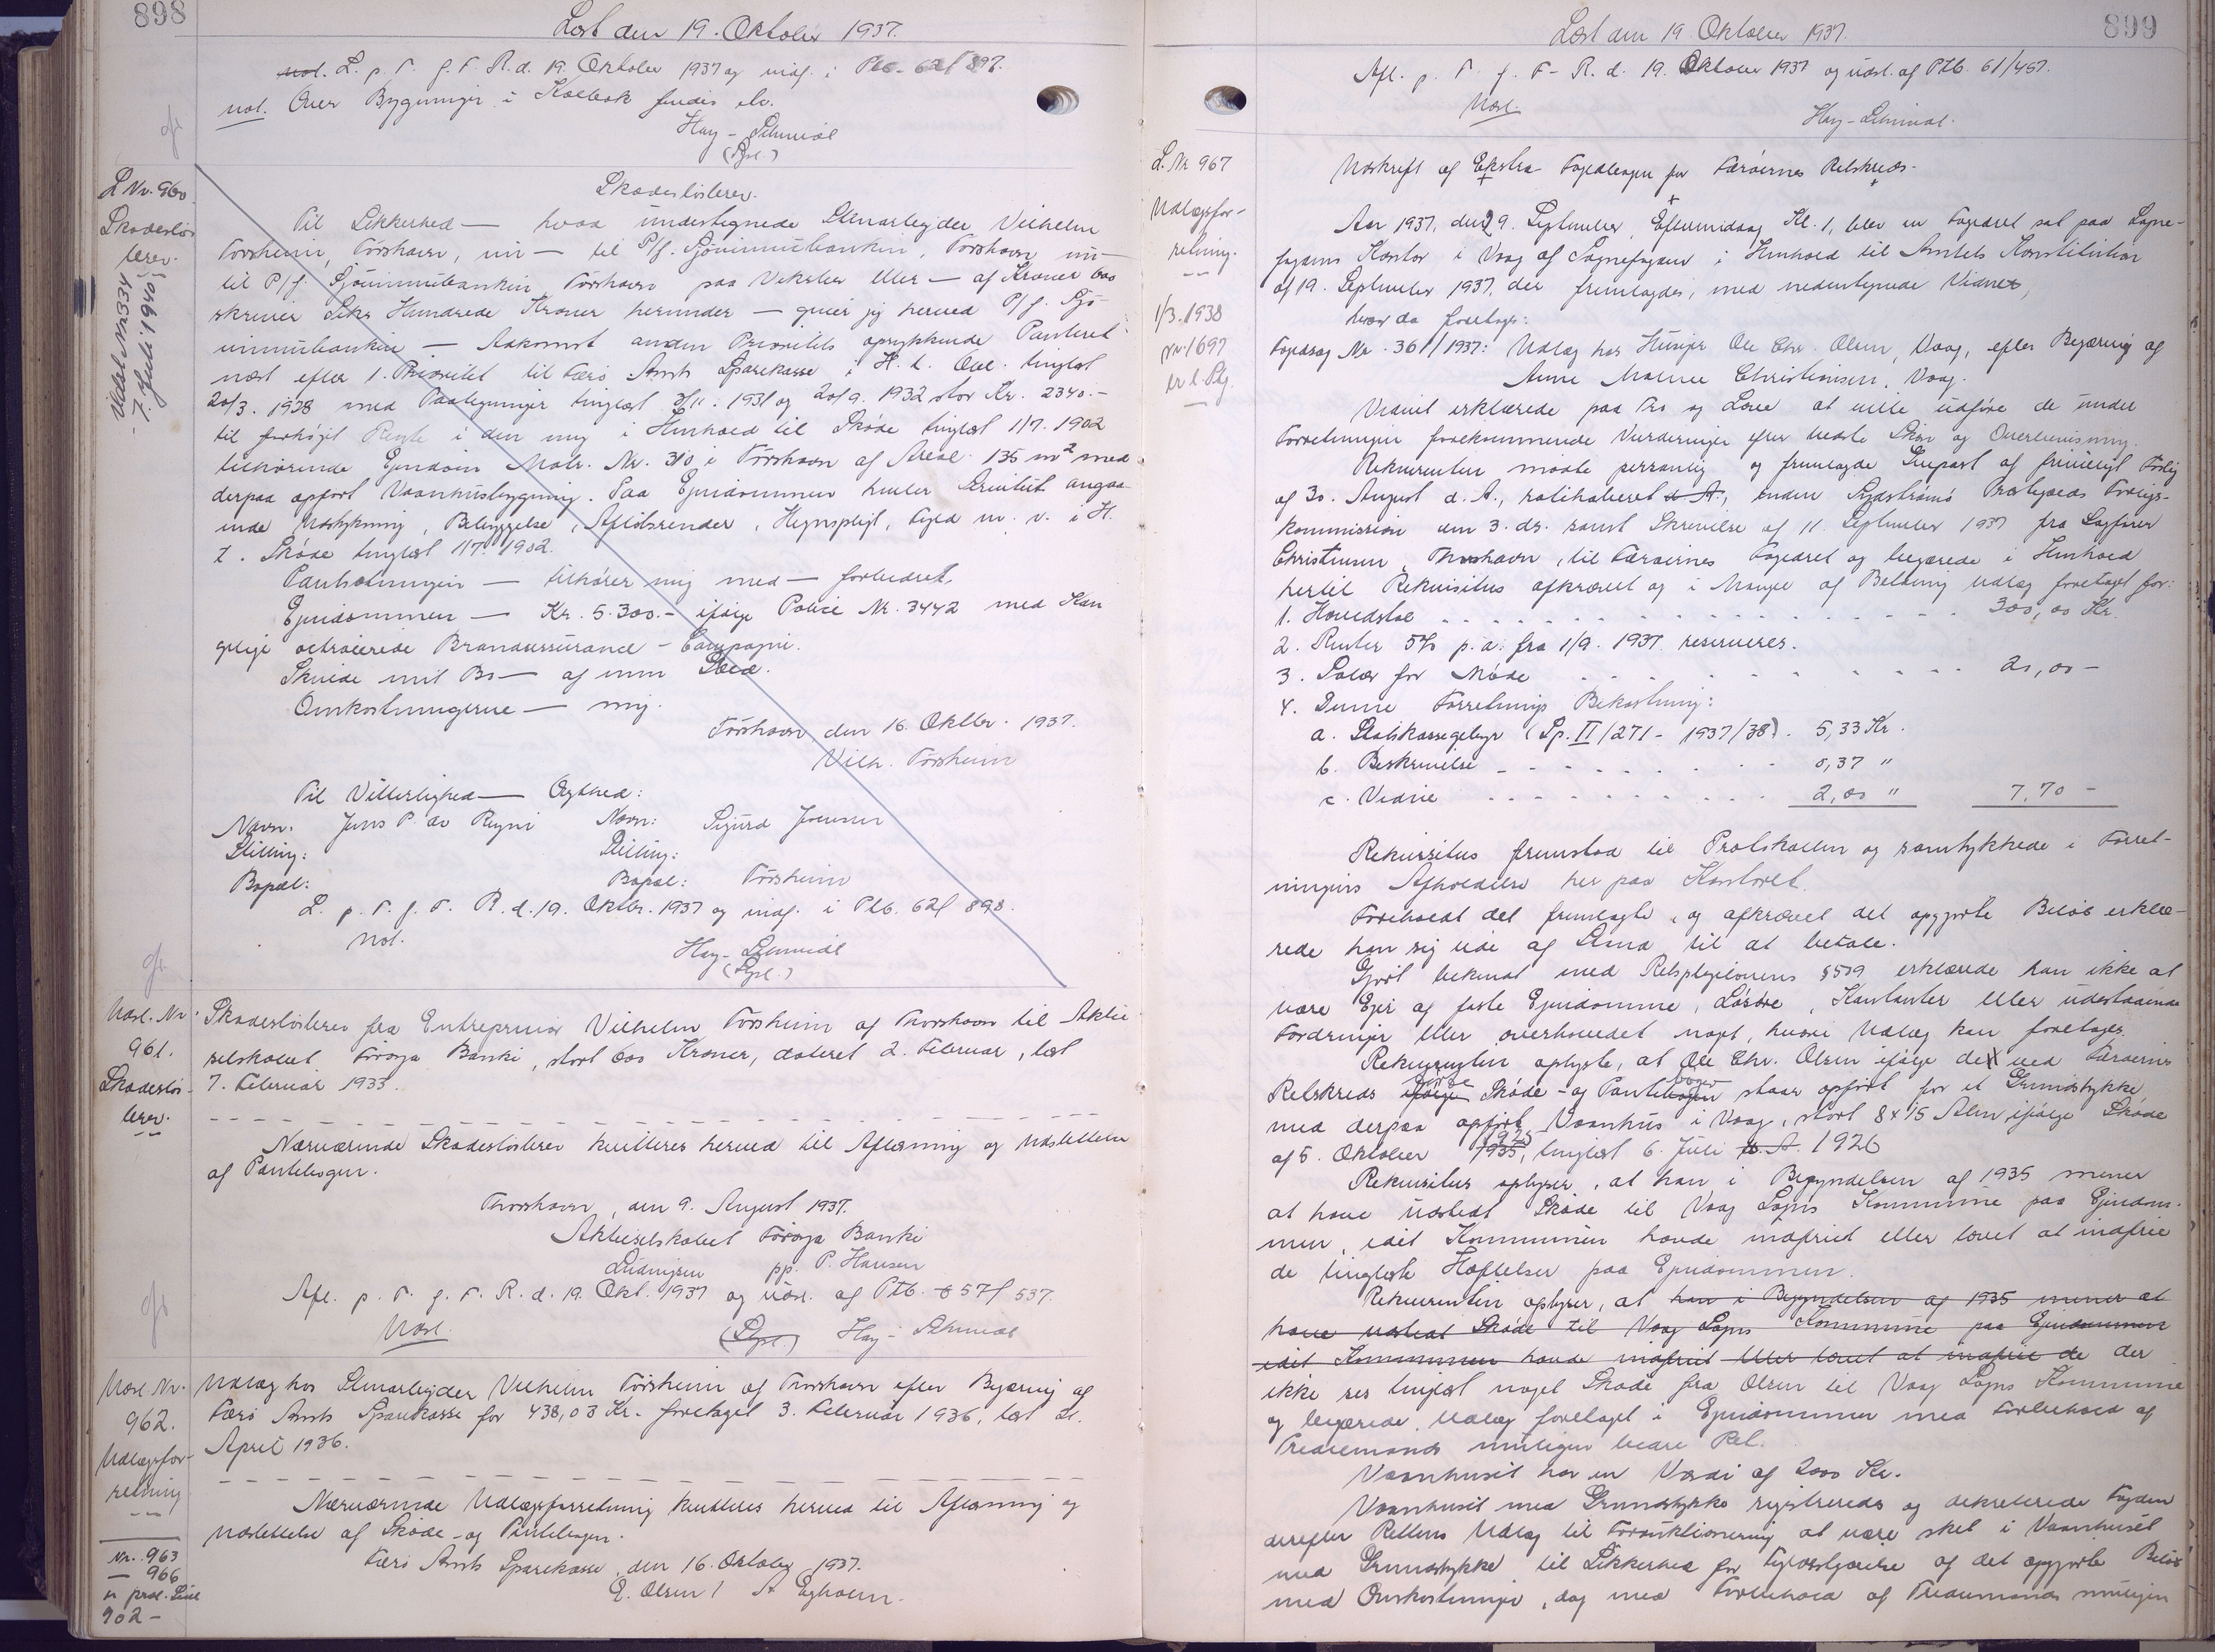 898
Læst den 19. Oktober 1937.
not. L. p. T. f. F. R. d. 19. Oktober 1937 og indf. i Ptb. 62f 897.
not. Over Bygninger i findes elv.
Hay-Schmidt
(Sgnl.)
L Nr. 960
Skadesløs
brev.
Udsl. Nr 334
7. Juli 1940
Skadesløsbrev.
Til Sikkerhed — hvad undertegnede Stenarbejder Vilhelm
Torsheim, Tórshavn, un — til P/f. Sjóvinnubankin, Tórshavn un —
til P/f. Sjóvinnubankin Tórshavn paa Veksler eller — af Kroner 600
skriver Seks Hundrede Kroner herunder — giver jeg herved P/f. Sjó-
vinnubankin — Aakomst anden Prioritets oprykkende Panteret
næst efter 1. Prioritet til Færø Amts Sparekasse i H. t. Obl. tinglæst
20/3. 1928 med Paategninger tinglæst 3/11. 1931 og 20/9. 1932 stor Kr. 2340.-
til forhøjet Rente i den mig i Henhold til Skøde tinglæst 1/7. 1902
tilhørende Ejendom Matr. Nr. 310 i Tórshavn af Areal 135 m² med
derpaa opført Vaanhusbygning. Paa Ejendommen hviler Servitut angaa-
ende Udstykning, Bebyggelse, Afløbsrender, Hegnspligt, Fyld m. v. i H.
t. Skøde tinglæst 1/7. 1902.
Pantsætningen — tilhører mig med — forbedret.
Ejendommen — Kr. 5.300.- ifølge Police Nr. 3442 med Kon
gelige octroierede Brandassurance-Compagni.
Skulde mit Bo — af min Død.
Omkostningerne — mig.
Tórshavn den 16. Oktbr. 1937.
Vilh. Tórsheim
Til Vitterlighed — Ægthed:
Navn: Jens P. av Reyni Navn: Sigurd Joensen
Stilling: Stilling:
Bopæl: Bopæl: Tórsheim
L. p. T. f. F. R. d. 19. Oktbr. 1937 og indf. i Ptb. 62f 898.
Not.
Hay-Schmidt
(Sgnl.)
Udsl. Nr.
961.
Skadesløs-
brev.
Skadesløsbrev fra Entreprenør Vilhelm Torsheim af Thorshavn til Aktie-
selskabet Föroya Banki, stort 600 Kroner, dateret 2. Februar, læst
7. Februar 1933.
Nærværende Skadesløsbrev kvitteres herved til Aflæsning og Udslettelse
af Pantebogen.
Thorshavn, den 9. August 1937.
Aktieselskabet Föroya Banki
Ludvigsen pp. P. Hansen
Afl. p. T. f. F. R. d. 19. Okt. 1937 og udsl. af Ptb. 57f 537.
Udsl. (Sgnl.) Hay-Schmidt
Udsl. Nr.
962.
Udlægsfor-
retning
Udlæg hos Stenarbejder Vilhelm Tórsheim af Thorshavn efter Begæring af
Færø Amts Sparekasse for 438,03 Kr. foretaget 3. Februar 1936, læst 21.
April 1936.
Nærværende Udlægsforretning kvitteres herved til Aflæsning og
Udslettelse af Skøde- og Pantebogen.
Færø Amts Sparekasse, den 16. Oktober 1937.
E. Olsen / A Egholm.
Nr. 963
— 966
902 -
899
Læst den 19. Oktober 1937.
Afl. p. T. f. F. R. d. 19. Oktober 1937 og udsl. af Ptb. 61/457.
Udsl. Hay-Schmidt.
L. Nr 967
Udlægsfor-
retning.
1/3. 1938
Nr. 1697
Udskrift af Ekstra Fogedbogen for Færøernes Retskreds.
Aar 1937, den 29. September, Eftermiddag Kl. 1, blev en Fogedret sat paa Sogne-
fogedens Kontor i Vaag af Sognefogden i Henhold til Amtets Konstitution
af 19. September 1937, der fremlagdes, med nedentegnede Vidnet,
hvor da foretoges:
Fogedsag Nr. 361/1937: Udlæg hos Husejer Ole Chr. Olsen, Vaag, efter Begæring af
Anne Malene Christiansen, Vaag.
Vidnet erklærede paa Tro og Love at ville udføre de under
Forretningen forekommende Vurderinger efter bedste Skøn og Overbevisning.
Rekvirenten mødte personlig og fremlagde Genpart af frivilligt Forlig
af 30. August d. A., ratihaberet d. A., inden Suderøernes Forligs-
kommission den 3. ds. samt Skrivelse af 11. September 1937 fra Sagfører
Christiansen, Thorshavn, til Færøernes Fogedret og begærede i Henhold
hertil Rekvisitus afkrævet og i Mangel af Betaling Udlæg foretaget for:
1. Hovedstol 300,00 Kr.
2. Renter 5% p. a. fra 1/9. 1937 reserveres.
3. Salær for Møde 20,00 -
4. Denne Forretnings Bekostning:
a. Statskassegebyr (Sp. II/271 - 1937/38). 5,33 Kr.
b. Beskrivelse 0,37 "
c. Vidne 2,00 " 7,70 -
Rekvisitus fremstod til Protokollen og samtykkede i Forret-
ningens Afholdelse her paa Kontoret.
Foreholdt det fremlagte, og afkrævet det opgjorte Beløb erklæ-
rede han sig ude af Stand til at betale.
Gjort bekendt med Retsplejelovens §509 erklærede han ikke at
være Ejer af faste Ejendomme, Løsøre, Kontanter eller udestaaende
Fordringer eller overhovedet noget, hvori Udlæg kan foretages.
Rekvirenten oplyste, at Ole Chr. Olsen ifølge de ved Færøernes
Retskreds ifølge førte Skøde- og Pantebøger staar opført for et Grundstykke
med derpaa opført Vaanhus i Vaag, stort 8 x 15 Alen ifølge Skøde
af 5. Oktober 1935 1925, tinglæst 6. Juli d. A. 1926
Rekvisitus oplyser, at han i Begyndelsen af 1935 mener
at have udstedt Skøde til Vaag Sogns Kommune paa Ejendom-
men, idet Kommunen havde indfriet eller lovet at indfrie
de tinglæste Hæftelser paa Ejendommen.
Rekvirenten oplyser, at han i Begyndelsen af 1935 mener at
have udstedt Skøde til Vaag Sogns Kommune paa Ejendommen
idet Kommunen havde indfriet eller lovet at indfrie de der
ikke ses tinglæst noget Skøde fra Olsen til Vaag Sogns Kommune
og begærede Udlæg foretaget i Ejendommen med Forbehold af
Trediemands muligen bedre Ret.
Vaanhuset har en Værdi af 2000 Kr.
Vaanhuset med Grundstykke registreredes og dekreterede Fogden
derefter Rettens Udlæg til Foranktionering at være sket i Vaanhuset
med Grundstykke til Sikkerhed for Fyldestgørelse af det opgjorte Beløb
med Omkostninger, dog med Forbehold af Trediemands muligen